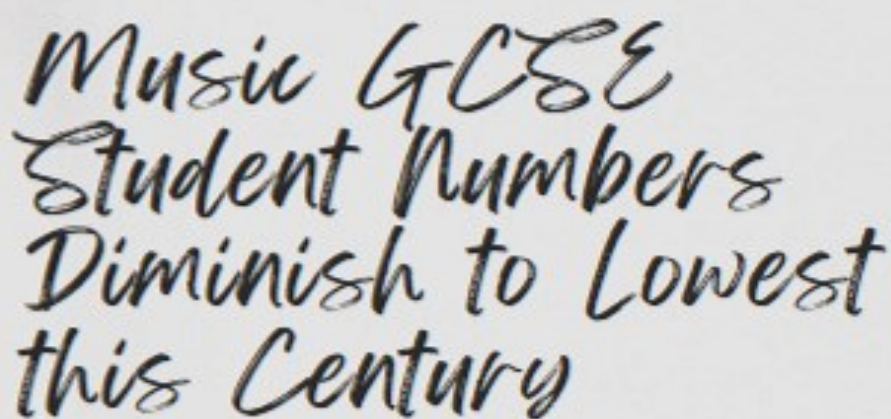 Music GCSE
Student Numbers
Diminish to Lowest
this Century